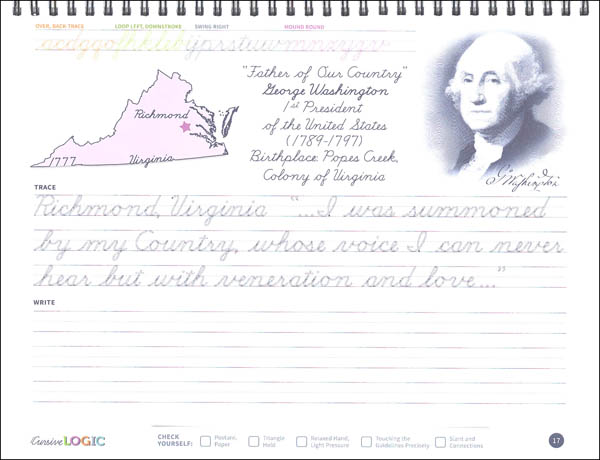 OVER, BACK TRACE LOOP LEFT, DOWNSTROKE SWING RIGHT MOUND ROUND
"Father of Our Country"
George Washington
1st President
of the United States
(1789-1797)
Birthplace: Popes Creek,
Colony of Virginia
Richmond
1777 Virginia
G Washington
TRACE
Richmond, Virginia "...I was summoned
by my Country, whose voice I can never
hear but with veneration and love..."
WRITE
Cursive LOGIC
CHECK YOURSELF:
Posture, Paper
Triangle Hold
Relaxed Hand, Light Pressure
Touching the Guidelines Precisely
Slant and Connections
17